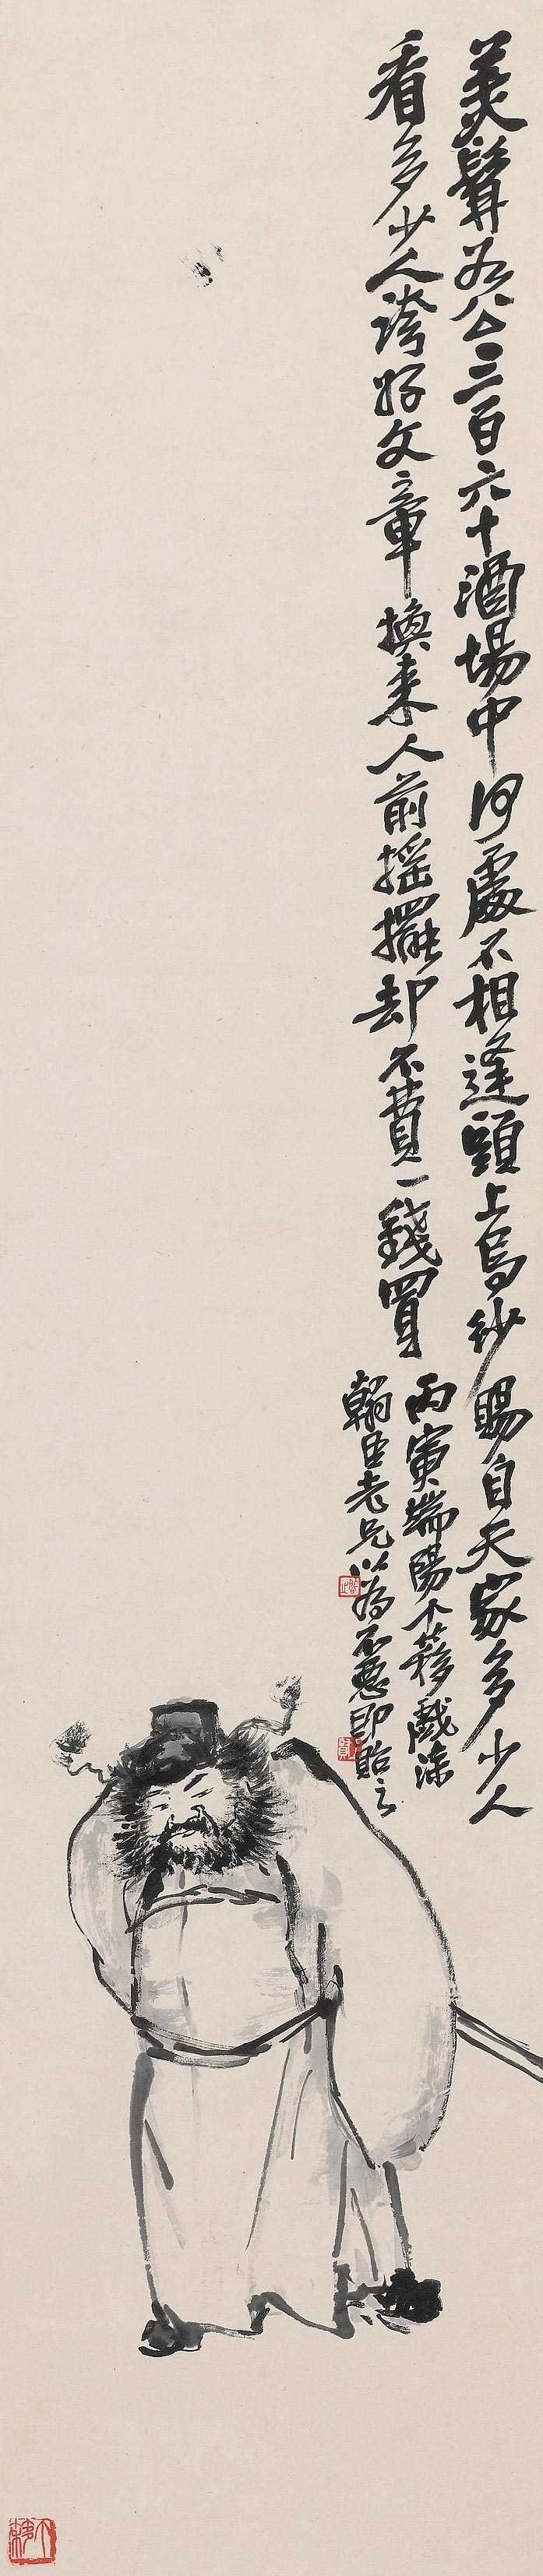 美髯若公三百六十酒場中何處不相逢頭上烏紗賜自天家多少人
看多少人誇好文章換來人前搖擺却不費一錢買
丙寅端陽不䔟戲涂
翰臣老兄以為不惡即貽之